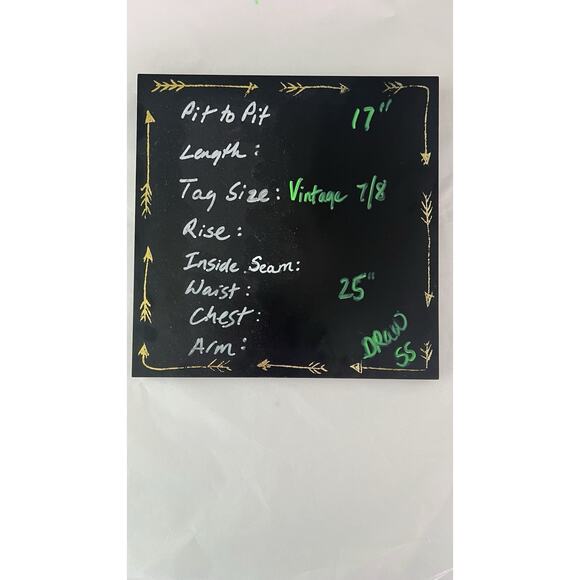 Pit to Pit 17"
Length:
Tag Size: Vintage 7/8
Rise:
Inside Seam:
Waist: 25"
Chest:
Arm:
DRaW
55